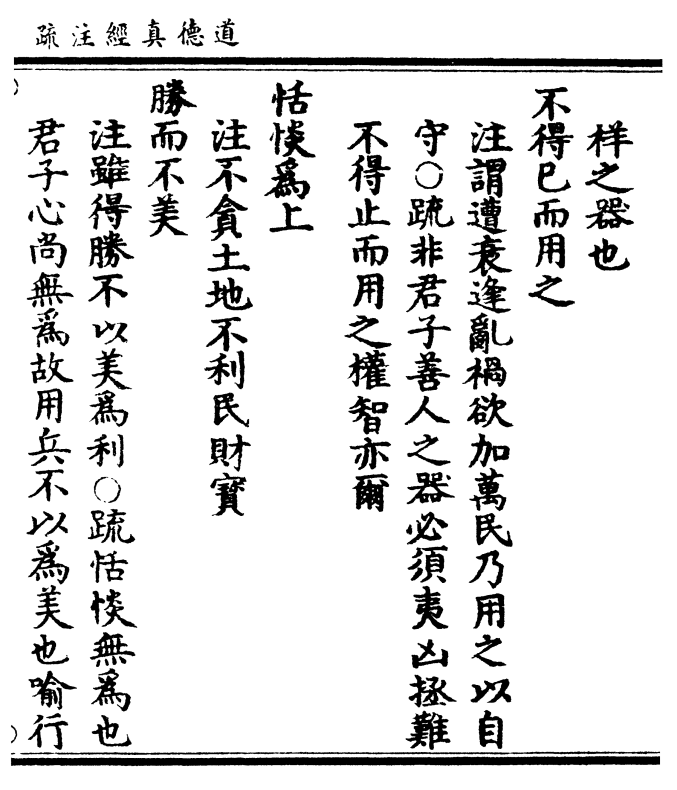 道德真經注疏
样之器也
不得已而用之
注謂遭衰逢亂禍欲加萬民乃用之以自
守○疏非君子善人之器必須夷凶拯難
不得止而用之權智亦爾
恬惔爲上
注不貪土地不利民財寶
勝而不美
注雖得勝不以美爲利○疏恬惔無爲也
君子心尚無爲故用兵不以爲美也喻行